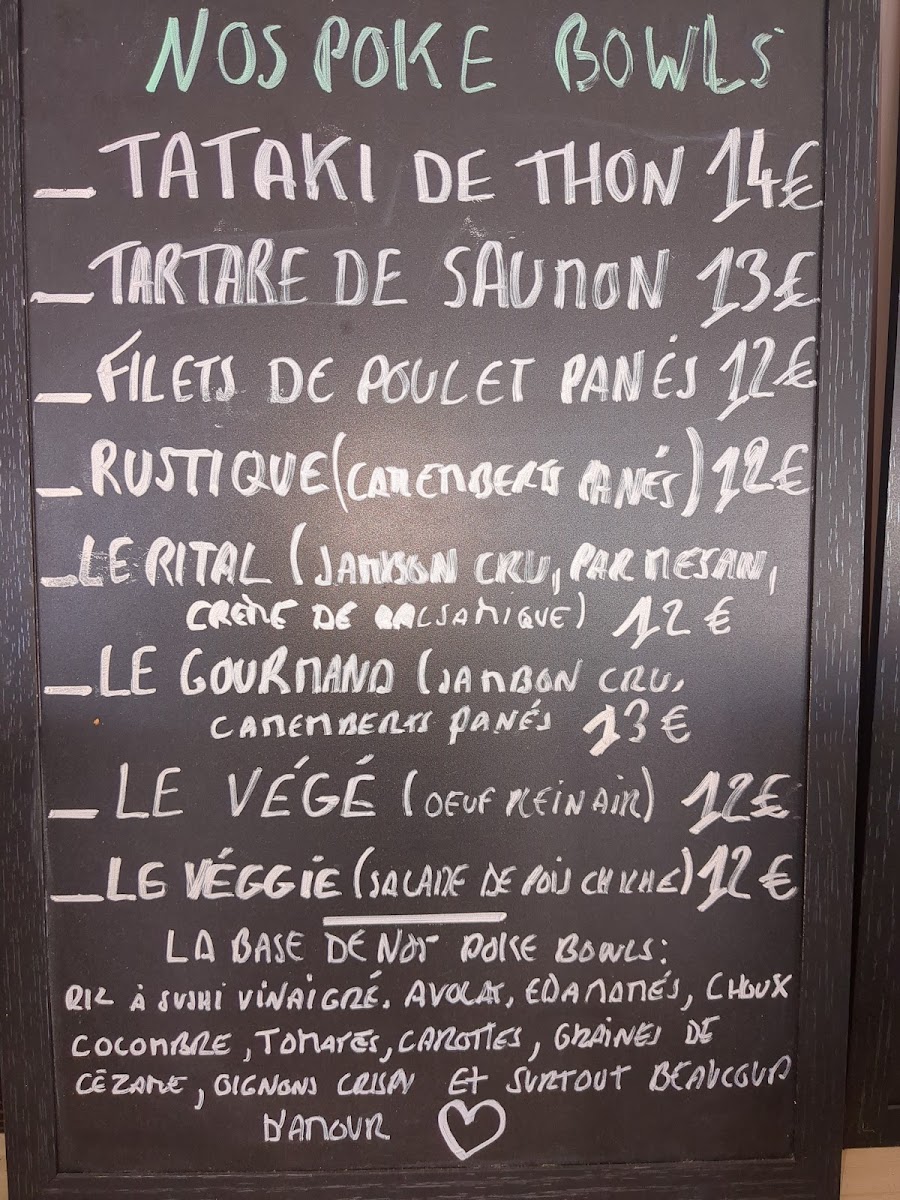 NOS POKE BOWLS
_ TATAKI DE THON 14€
_ TARTARE DE SAUMON 13€
_ FILETS DE POULET PANÉS 12€
_ RUSTIQUE (CAMEMBERTS PANÉS) 12€
_ LE RITAL (JAMBON CRU, PARMESAN,
CRÈME DE BALSAMIQUE) 12€
_ LE GOURMAND (JAMBON CRU,
CAMEMBERTS PANÉS 13€
_ LE VÉGÉ (OEUF PLEIN AIR) 12€
_ LE VÉGGIE (SALADE DE POIS CHICHE) 12€
LA BASE DE NOS POKE BOWLS:
RIZ À SUSHI VINAIGRÉ. AVOCAT, EDAMAMÉS, CHOUX
COCOMBRE, TOMATES, CAROTTES, GRAINES DE
CÉZAME, OIGNONS CRISPY ET SURTOUT BEAUCOUP
D'AMOUR ♡